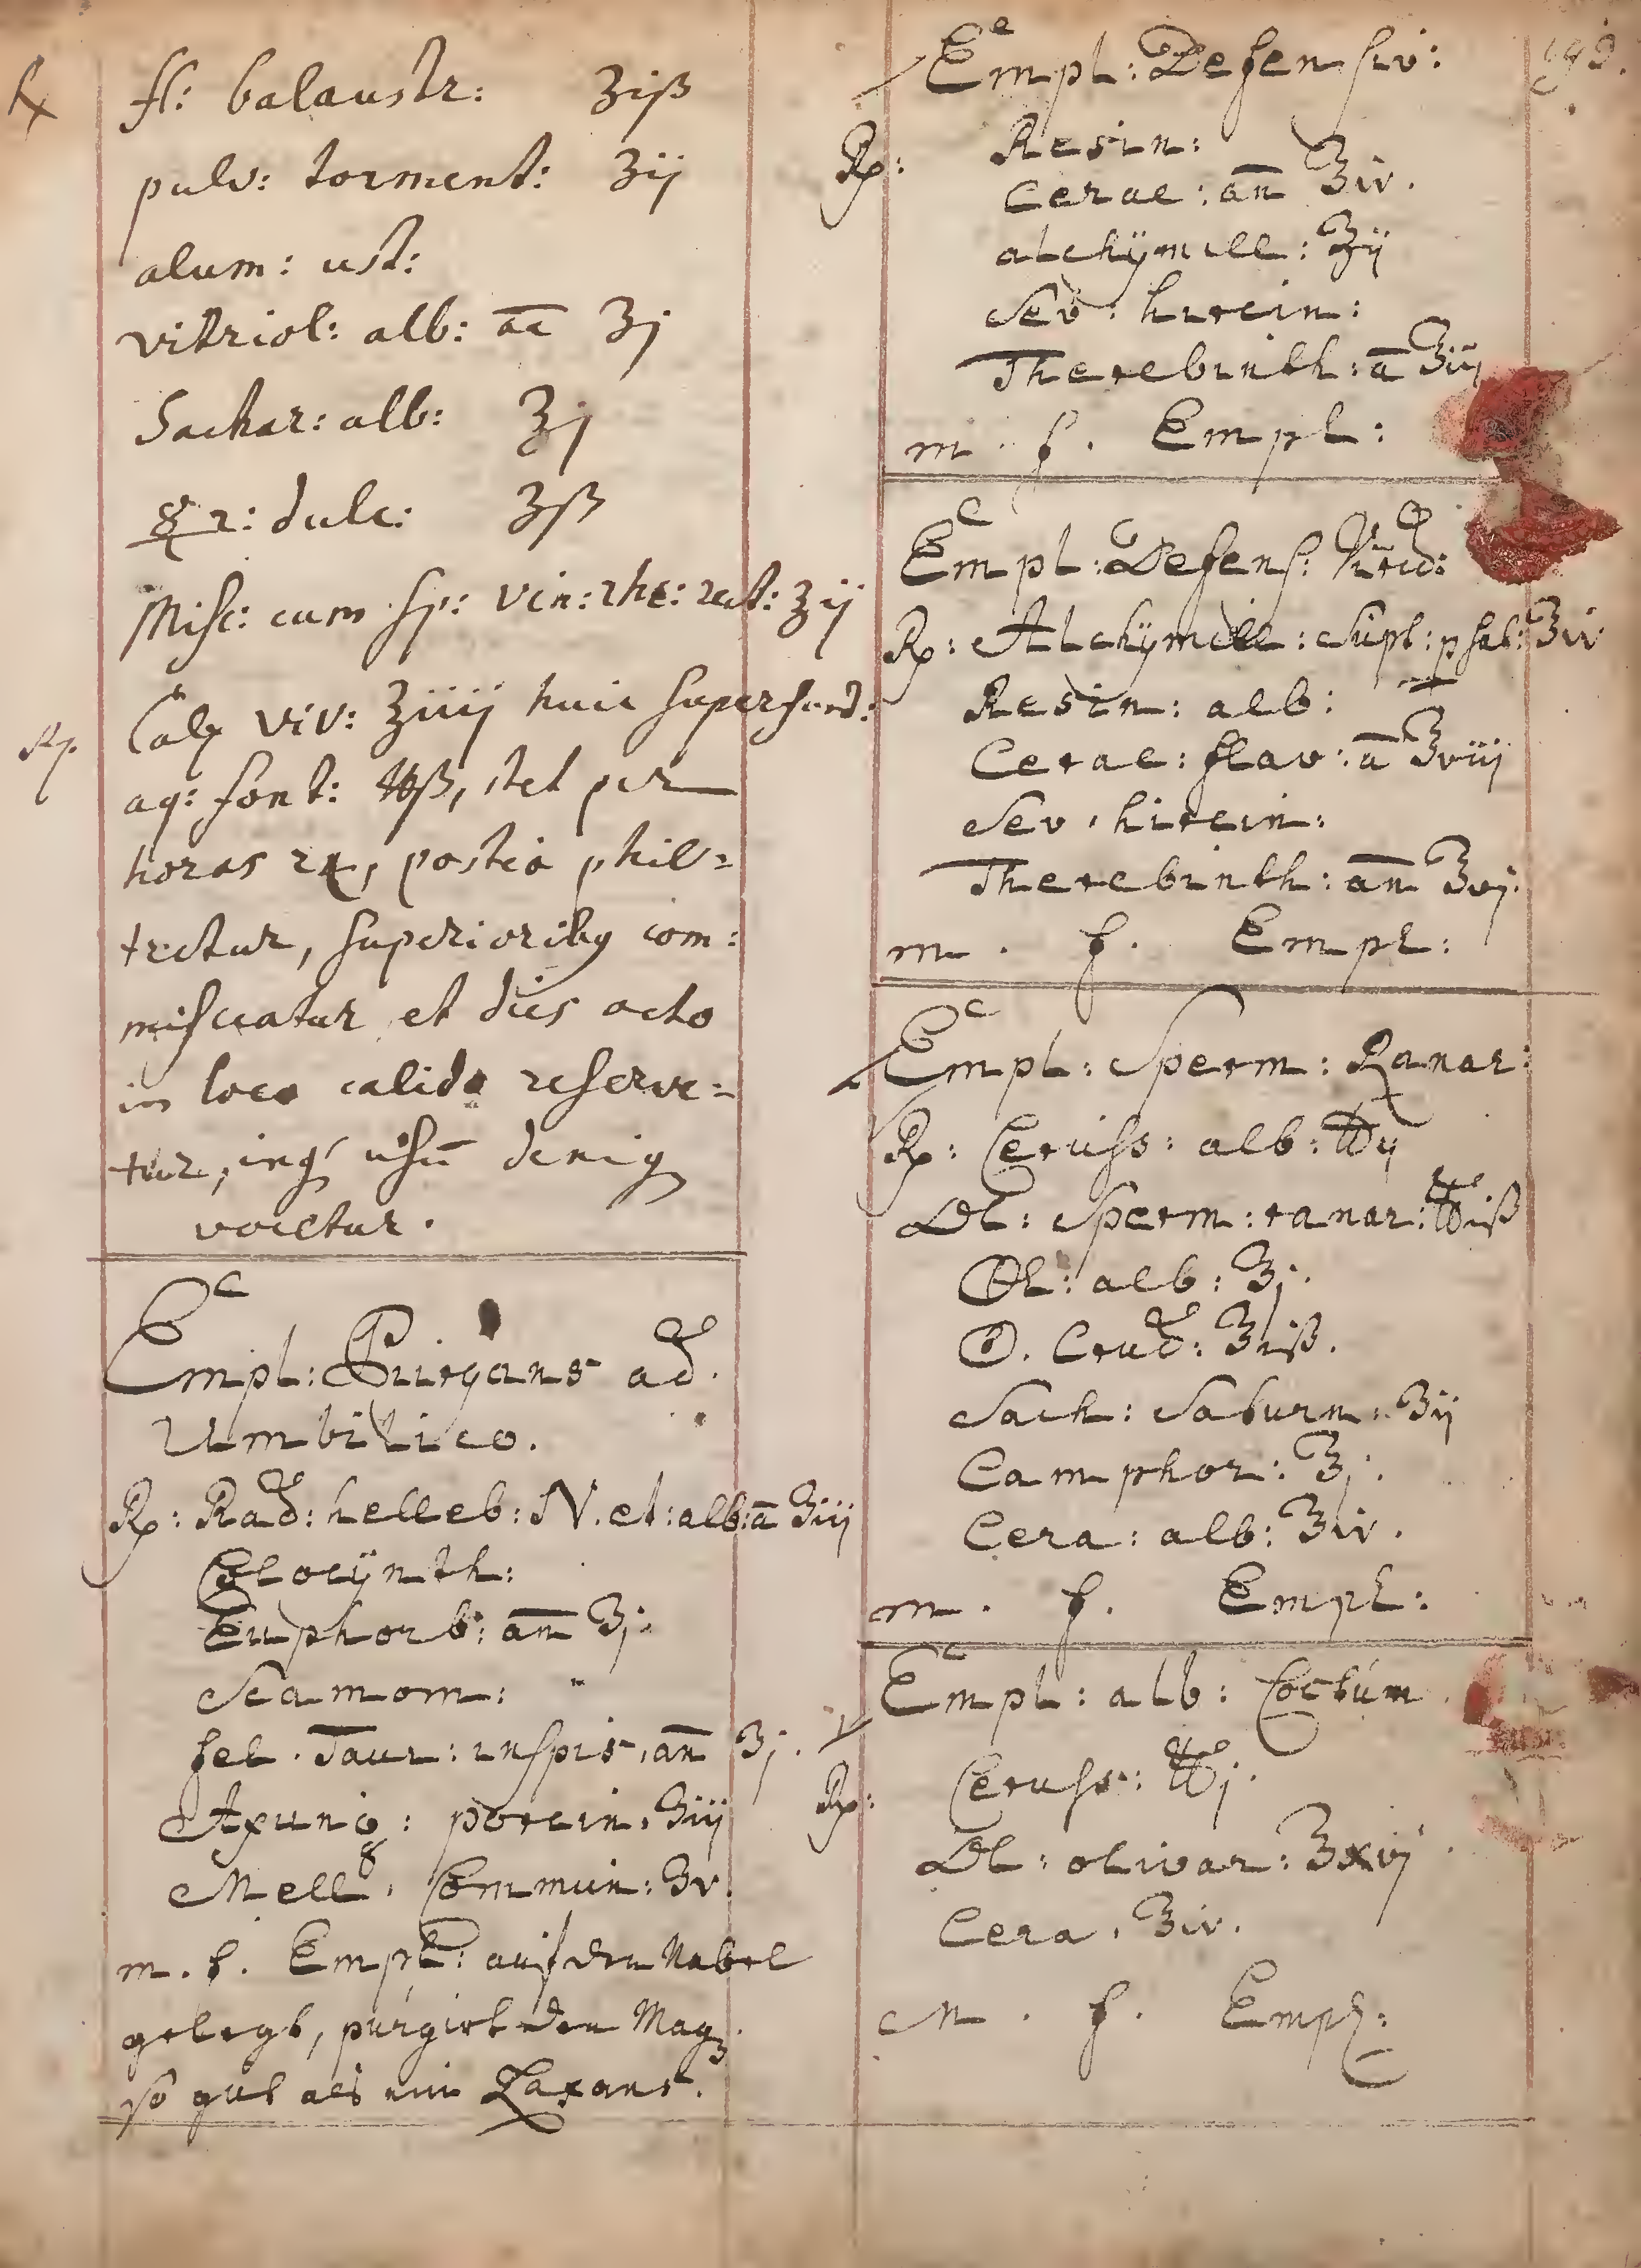 ℞ fl: balaustr: ʒiß
pulv: torment: ʒij
alum: ust:
vitriol: alb: āā ʒj
Sachar: alb: ʒj
☿r: dulc: ʒß
Misc: cum sp: vin: rhe: rect: ʒij
Rp. Calx viv: ʒiiij huic superfund:
aq: font: ℔ß, stet per
horas 24, postea phil=
tretur, superioribq com:
misceatur et dies octo
in loco calido reserve=
tur, inq́ usū deniq
vocetur.
Empl: Purgans ad
Umbilico.
Rp: Rad: helleb: N. et: alb: ā ʒiij
Colocÿnth:
Euphorb: añ ʒj.
Scamom:
fel. Taur: inspis, añ ʒj.
Axung: porcin, ʒiij
Mell. Commun: ʒv.
m. f. Empl: auf den Nabel
gelegt, purgirt den Mag
so gut als ein Laxans.
Empl: Defensiv:
Rp: Resin:
Cerae: añ ℥iv.
alchÿmill: ℥ij
Sev: hircin:
Therebinth: ā ℥iij
m. f. Empl:
Empl: Defens: Virid:
Rp: Alchÿmill: Supt: ℥iv
Resin: alb:
Cerae: flav: ā ℥viij
Sev. hircin:
Therebinth: añ ℥vj.
m. f. Empl:
Empl: Sperm: Ranar:
Rp: Ceruss: alb: ℔ij
Ol: Sperm: ranar: ℔iß
alb: ℥j.
Crud: ℥iß.
Sach: Saturn: ʒij
Camphor: ℥j.
Cera: alb: ℥iv.
m. f. Empl:
Empl: alb: Coctum
Rp: Ceruss: ℔j.
Ol: olivar: ℥xvj
Cera. ℥iv.
M. f. Empl: